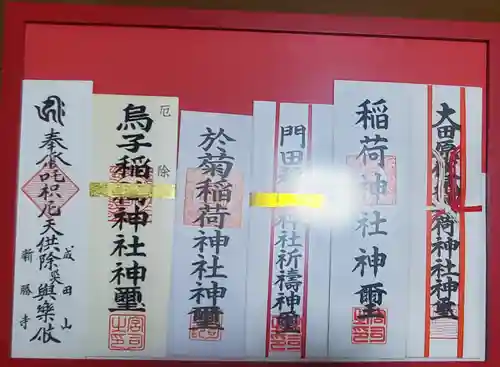 大田原
荷神社神璽
稲荷神社神璽
門田
神社祈禱神璽
於菊稲荷神社神璽
厄除
烏子稲荷神社神璽
奉修吒枳尼天供除災與樂攸
成田山
新勝寺